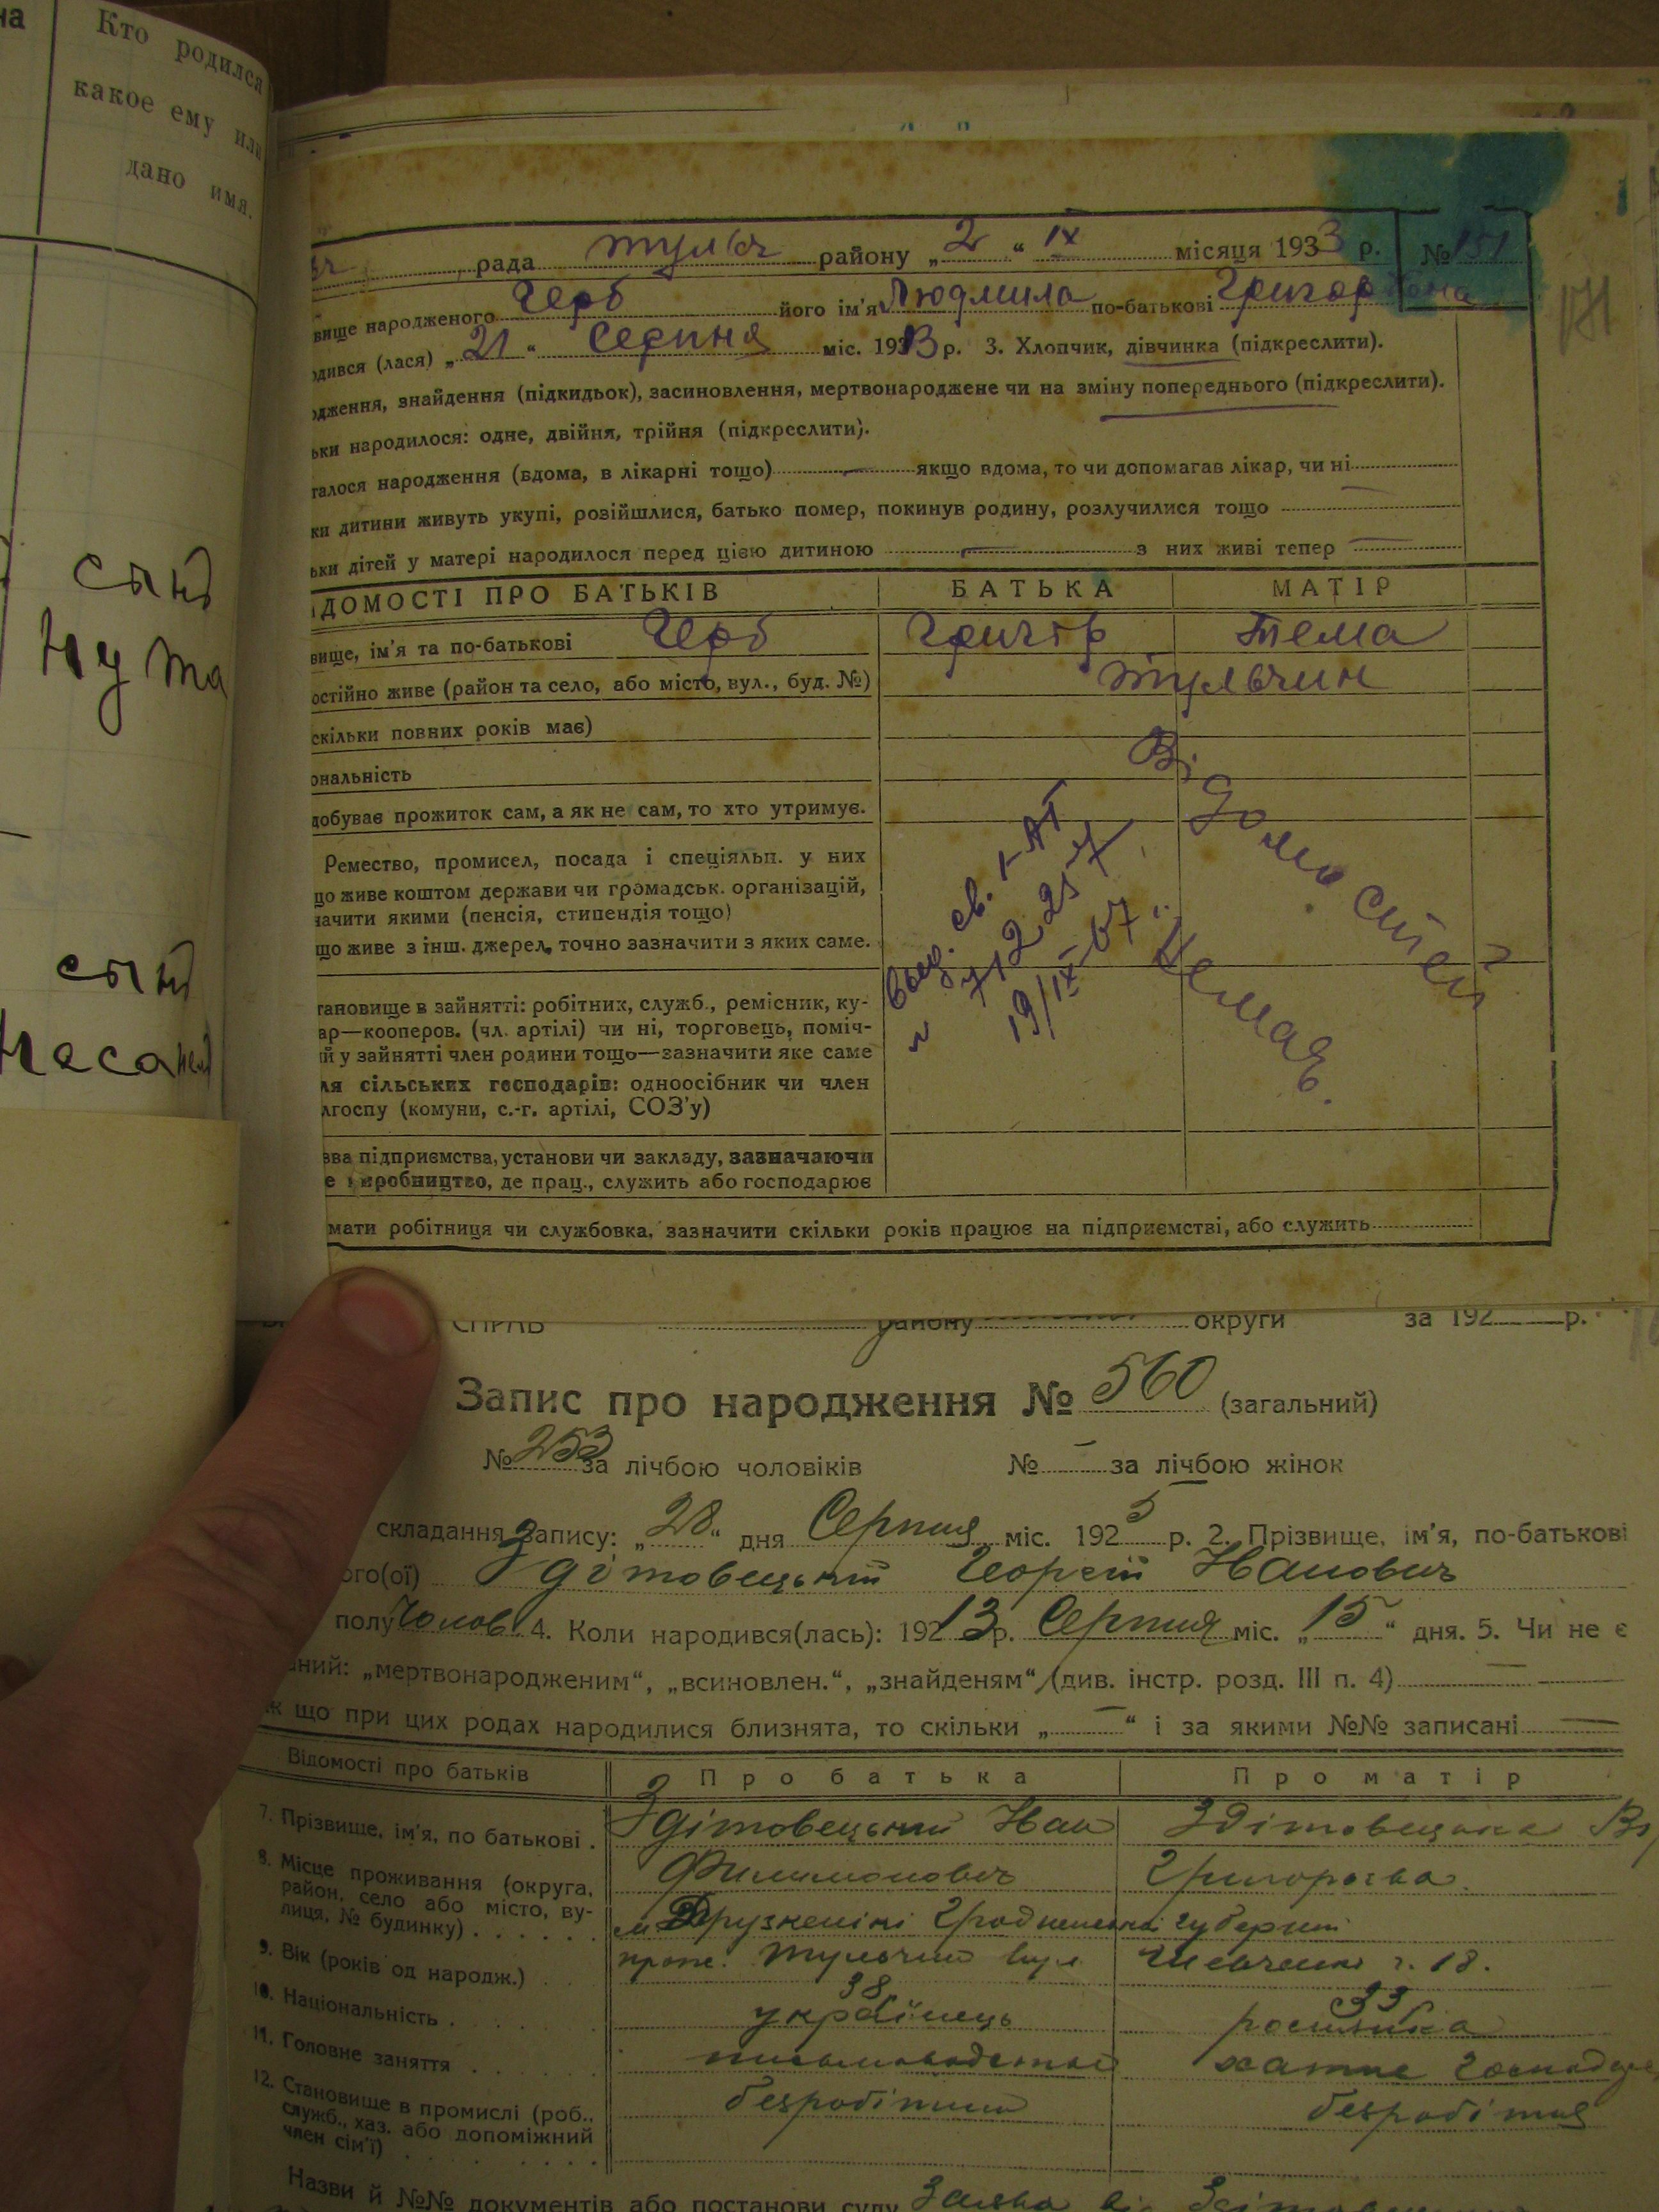 на
Кто родился
какое ему или
дано имя.
сынъ
Нута
сынъ
рада тульч району „2“ IX місяця 1933 р. № 151
171
вище народженого Герб його ім'я Людмила по-батькові Григорівна
одився (лася) „21“ Серпня міс. 1913 р. 3. Хлопчик, дівчинка (підкреслити).
одження, знайдення (підкидьок), засиновлення, мертвонароджене чи на зміну попереднього (підкреслити).
ьки народилося: одне, двійня, трійня (підкреслити).
талося народження (вдома, в лікарні тощо) — якщо вдома, то чи допомагав лікар, чи ні
ки дитини живуть укупі, розійшлися, батько помер, покинув родину, розлучилися тощо —
ьки дітей у матері народилося перед цією дитиною — з них живі тепер —
ДОМОСТІ ПРО БАТЬКІВ БАТЬКА МАТІР
вище, ім'я та по-батькові Герб Григір Тема
остійно живе (район та село, або місто, вул., буд. №) Тульчин
скільки повних років має)
ональність
добуває прожиток сам, а як не сам, то хто утримує.
Ремество, промисел, посада і спеціяльн. у них
що живе коштом держави чи громадськ. організацій,
начити якими (пенсія, стипендія тощо)
що живе з інш. джерел, точно зазначити з яких саме.
Відомостей
немає.
19/IX-67
тановище в зайнятті: робітник, служб., ремісник, ку-
ар—кооперов. (чл. артілі) чи ні, торговець, поміч-
й у зайнятті член родини тощо—зазначити яке саме
ля сільських господарів: одноосібник чи член
лгоспу (комуни, с.-г. артілі, СОЗ'у)
зва підприємства, установи чи закладу, зазначаючи
е виробництво, де прац., служить або господарює
мати робітниця чи службовка, зазначити скільки років працює на підприємстві, або служить
району округи за 192 р.
Запис про народження № 560 (загальний)
№ 253 за лічбою чоловіків № — за лічбою жінок
складання запису: „28“ дня Серпня міс. 1925 р. 2. Прізвище, ім'я, по-батькові
ого(ої) Здітовецький Георгій Іванович
полу Чолов. 4. Коли народився(лась): 1913 р. Серпня міс. „15“ дня. 5. Чи не є
аний: „мертвонародженим“, „всиновлен.“, „знайденям“ (див. інстр. розд. III п. 4) —
що при цих родах народилися близнята, то скільки „—“ і за якими №№ записані —
Відомості про батьків Про батька Про матір
7. Прізвище, ім'я, по батькові . Здітовецький Іван Здітовецька
Филимонович Григоровна
8. Місце проживання (округа,
район, село або місто, ву-
лиця, № будинку) . . . . . . м. Друзкенікі Гродненської губернії
прож. Тульчин вул. Шевченка ч. 18.
9. Вік (років од народж.) 38 33
10. Національність . . . українець росіянка
11. Головне заняття . . . письмоводитель хатне
12. Становище в промислі (роб.,
служб., хаз. або допоміжний
член сім'ї) . . . . . . безробітний безробітня
Назви й №№ документів або постанови суду Заява